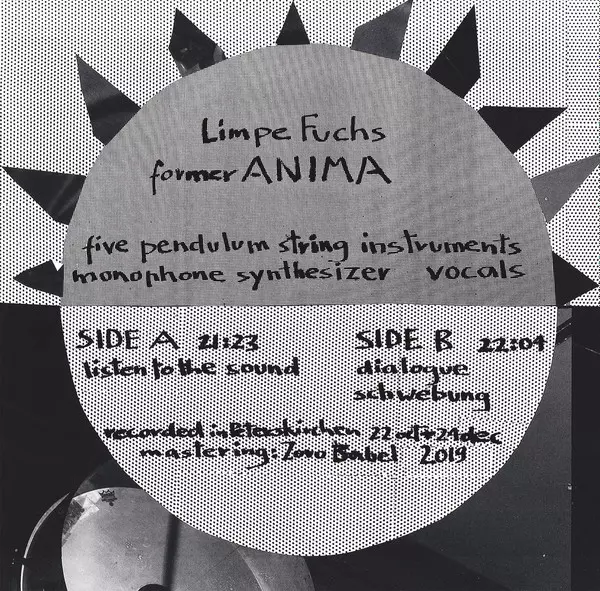 Limpe Fuchs
former ANIMA
five pendulum string instruments
monophone synthesizer vocals
SIDE A 21:23
listen to the sound
SIDE B 22:04
dialogue
schwebung
recorded in Peterskirchen 22 oct + 24 dec
mastering: Zoro Babel 2019